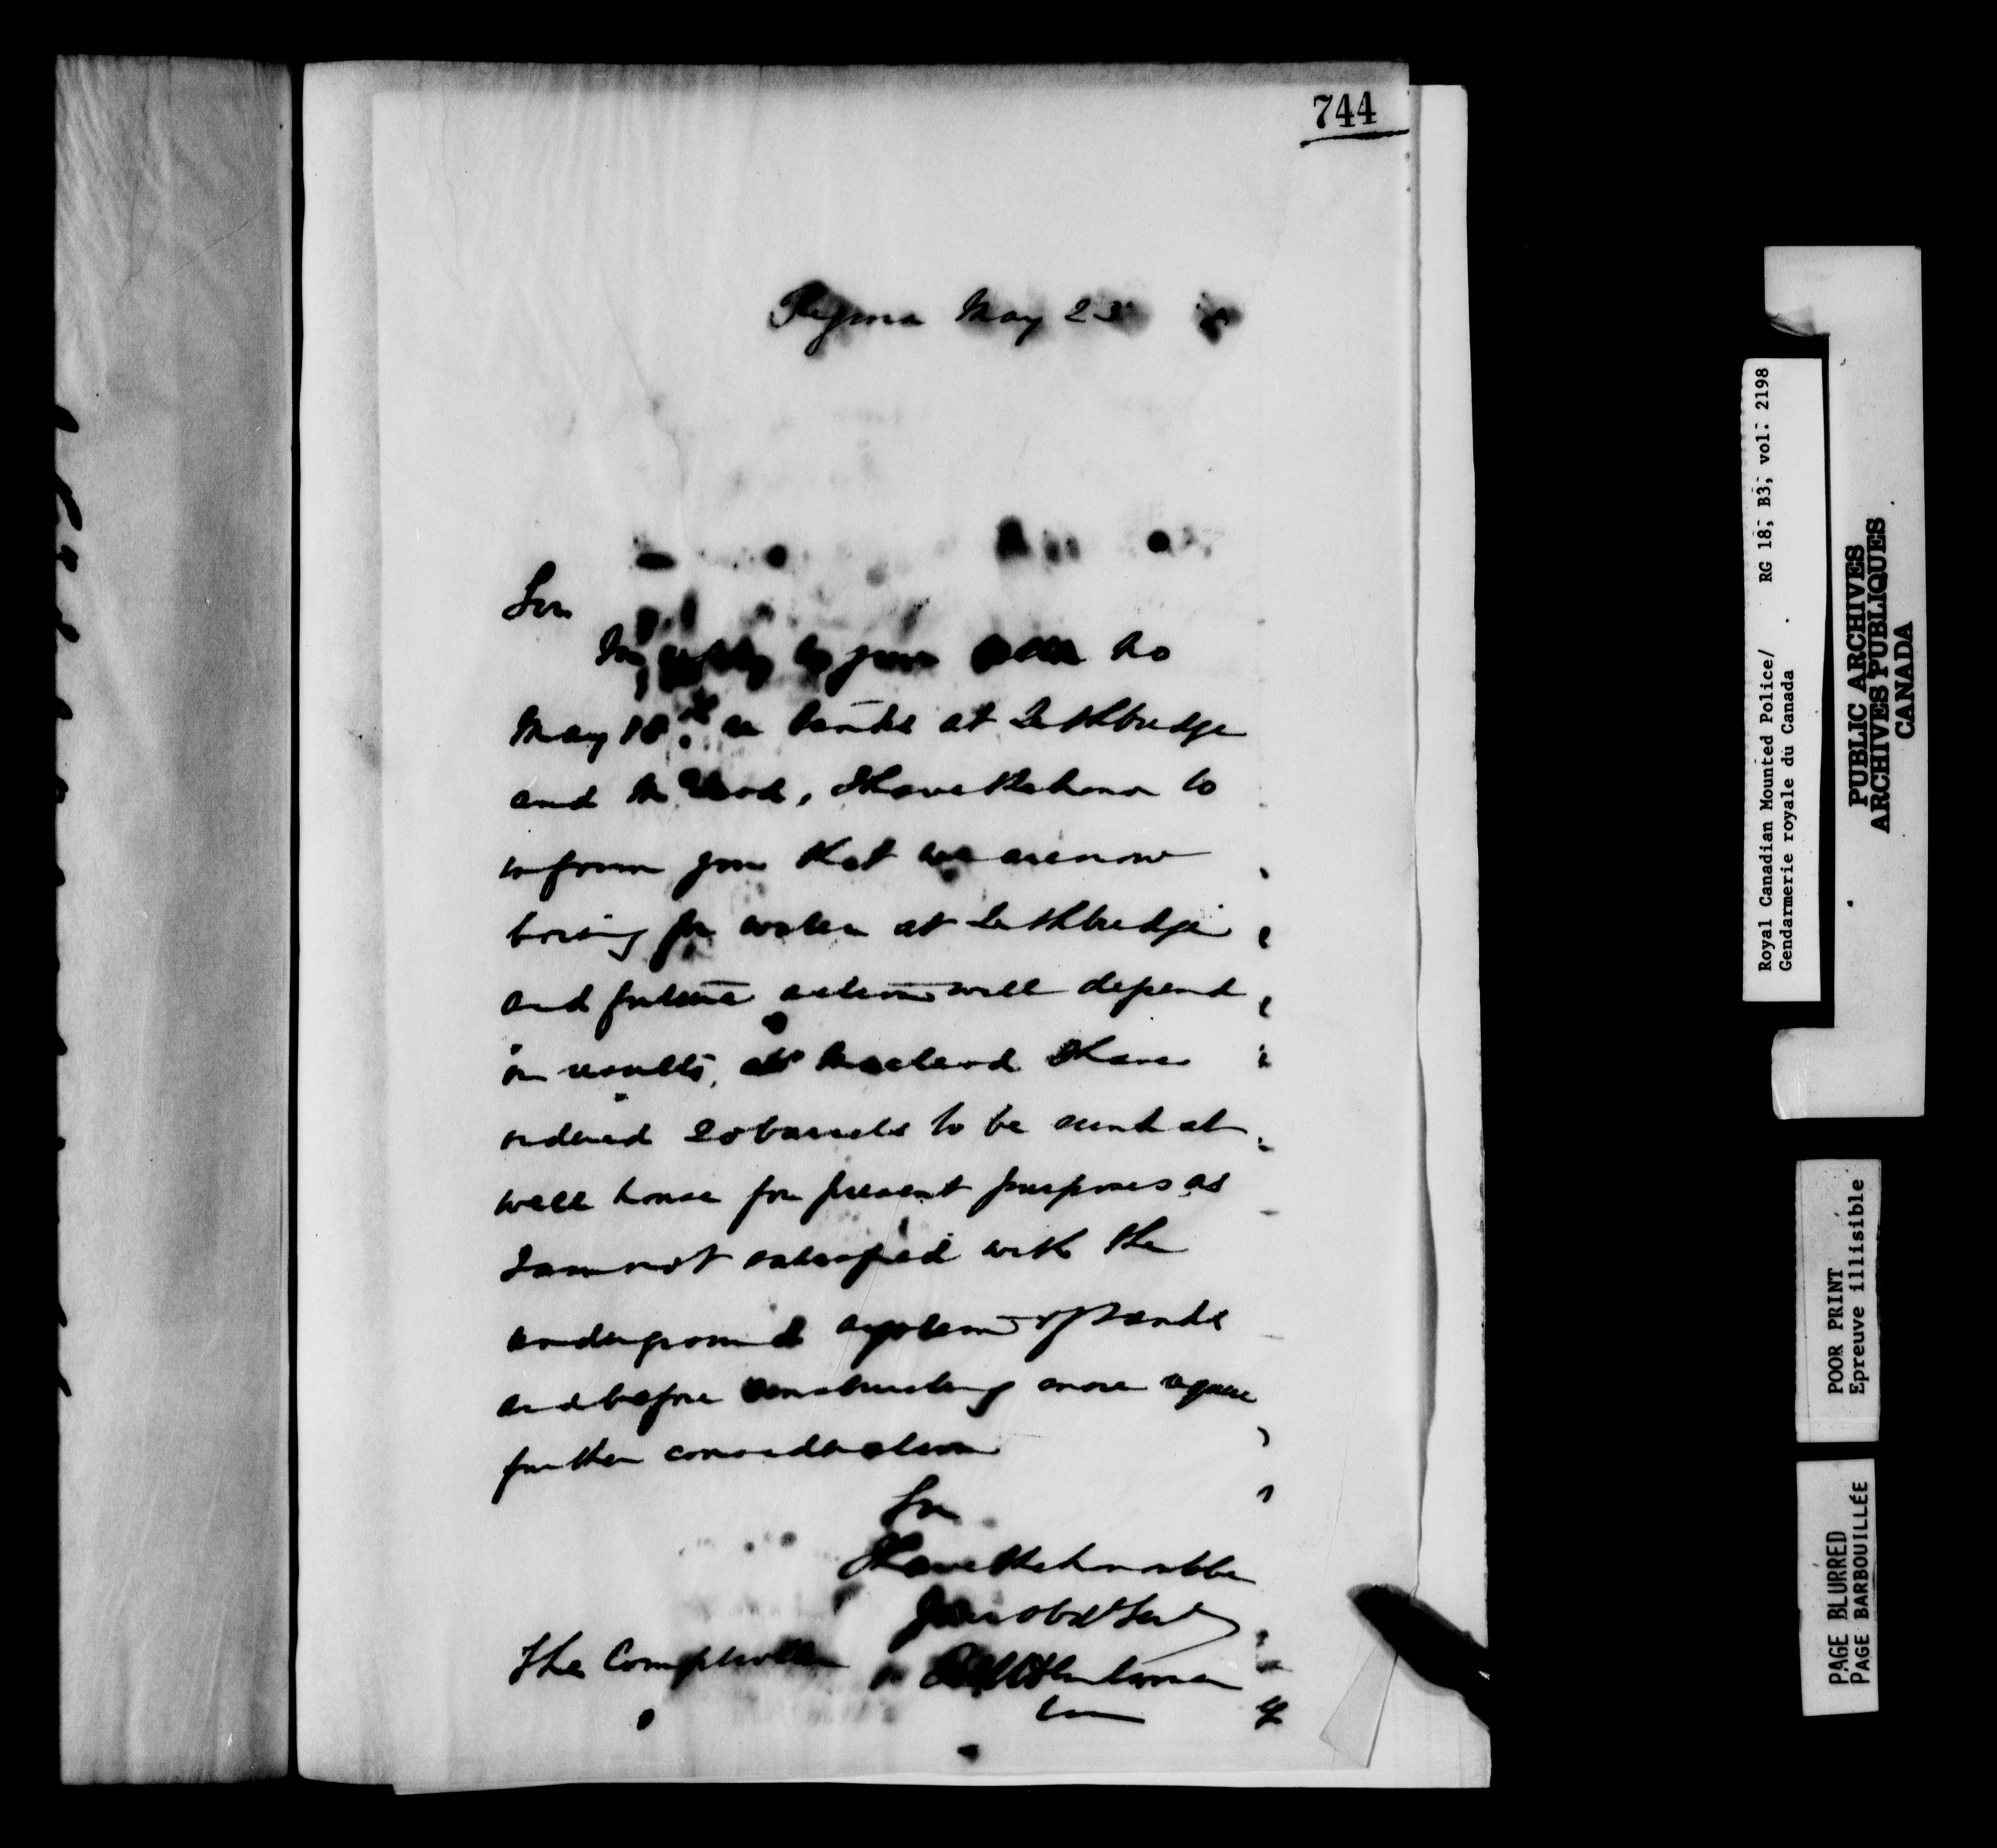 744
Regina May 23
Sir
In reply to your letter No
May 18th re tanks at Lethbridge
and McLeod, I have the honor to
inform you that we are now
boring for water at Lethbridge
and future action will depend
on results, at Macleod I have
ordered 20 barrels to be sunk at
well house for present purposes as
I am not satisfied with the
underground system of tanks
and before constructing more require
further consideration
Sir
I have the honor to be
Your obdt Sert
The Comptroller
Royal Canadian Mounted Police/ RG 18, B3, vol. 2198
Gendarmerie royale du Canada
PUBLIC ARCHIVES
ARCHIVES PUBLIQUES
CANADA
POOR PRINT
Epreuve illisible
PAGE BLURRED
PAGE BARBOUILLÉE